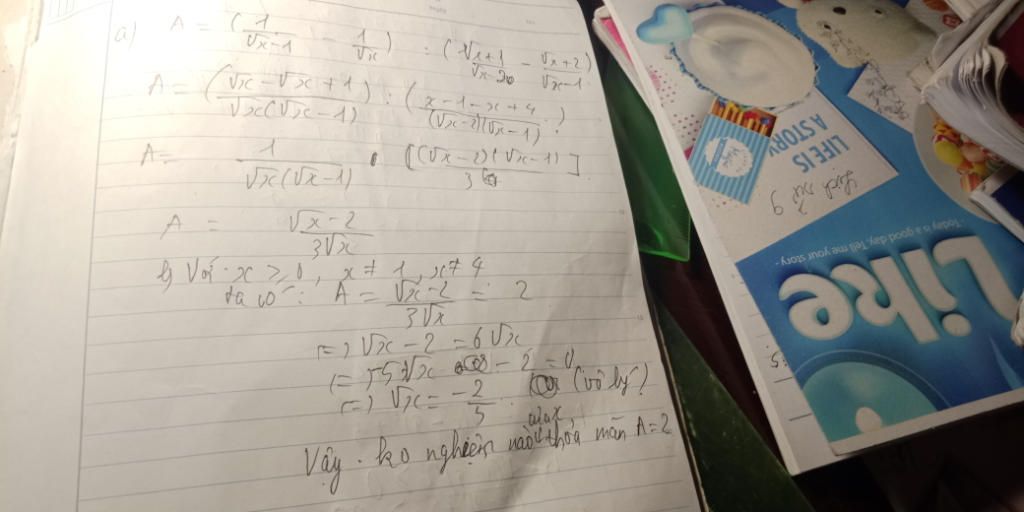 a) A = (1/(√x-1) - 1/√x) : ((√x+1)/(√x-2) - (√x+2)/(√x-1))
A = ((√x-√x+1)/(√x(√x-1))) : ((x-1-x+4)/((√x-2)(√x-1)))
A = 1/(√x(√x-1)) . [(√x-2)(√x-1)/3]
A = (√x-2)/(3√x)
b) Với x ≥ 0, x ≠ 1, x ≠ 4
ta có: A = (√x-2)/(3√x) = 2
=> √x - 2 = 6√x
(= -5√x - 2 = 0
=> √x = -2/5 (vô lý)
Vậy ko nghiệm nào của x thỏa mãn A=2
LIFE IS
A STORY
Lịch sử 9
- Today is a good day, Tell me your story -
Like